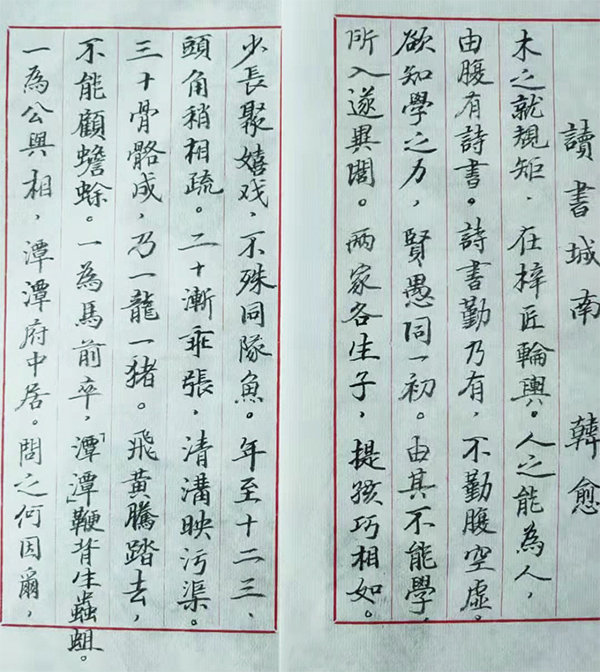 讀書城南 韓愈
木之就規矩．在梓匠輪輿。人之能為人，
由腹有詩書。詩書勤乃有，不勤腹空虛。
欲知學之力，賢愚同一初。由其不能學，
所入遂異閭。兩家各生子，提孩巧相如。
少長聚嬉戏，不殊同隊魚。年至十二三、
頭角稍相疏。二十漸乖張，清溝映污渠。
三十骨骼成，乃一龍一猪。飛黃騰踏去，
不能顧蟾蜍。一為馬前卒，「潭潭」鞭背生蟲蛆。
一為公與相，潭潭府中居。問之何因爾，